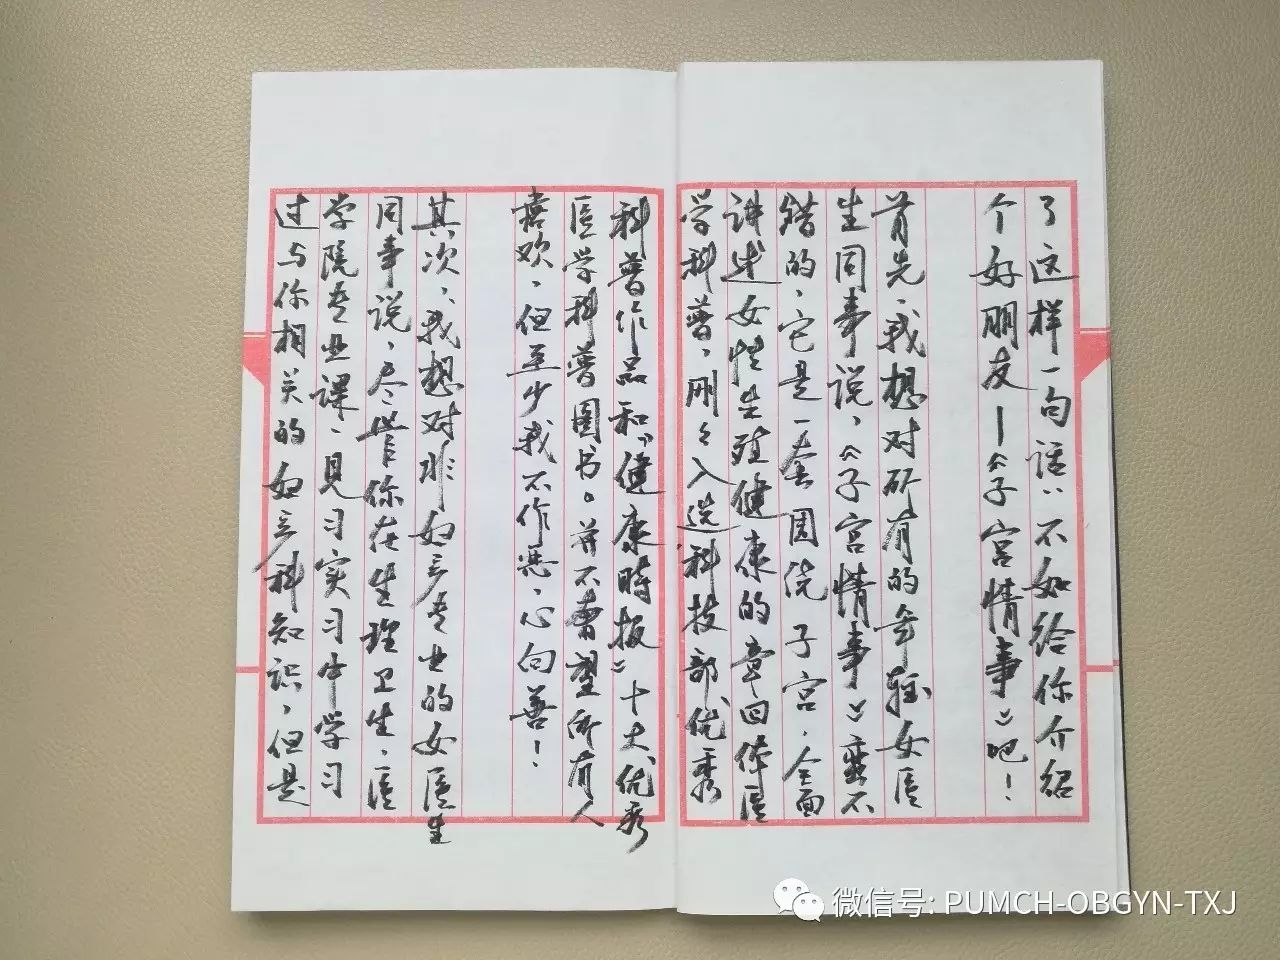 了这样一句话：不如给你介绍
个好朋友—《子宫情事》吧！
首先，我想对所有的年轻女医
生同事说，《子宫情事》蛮不
错的，它是一套围绕子宫，全面
讲述女性生殖健康的章回体医
学科普，刚々入选科技部“优秀
科普作品”和“健康時报”十大优秀
医学科普图书。并不奢望所有人
喜欢，但至少我不作恶，心向善！
其次，我想对非妇产专业的女医生
同事说，尽管你在生理卫生、医
学院专业课、见习实习中学习
过与你相关的妇产科知识，但是
微信号: PUMCH-OBGYN-TXJ